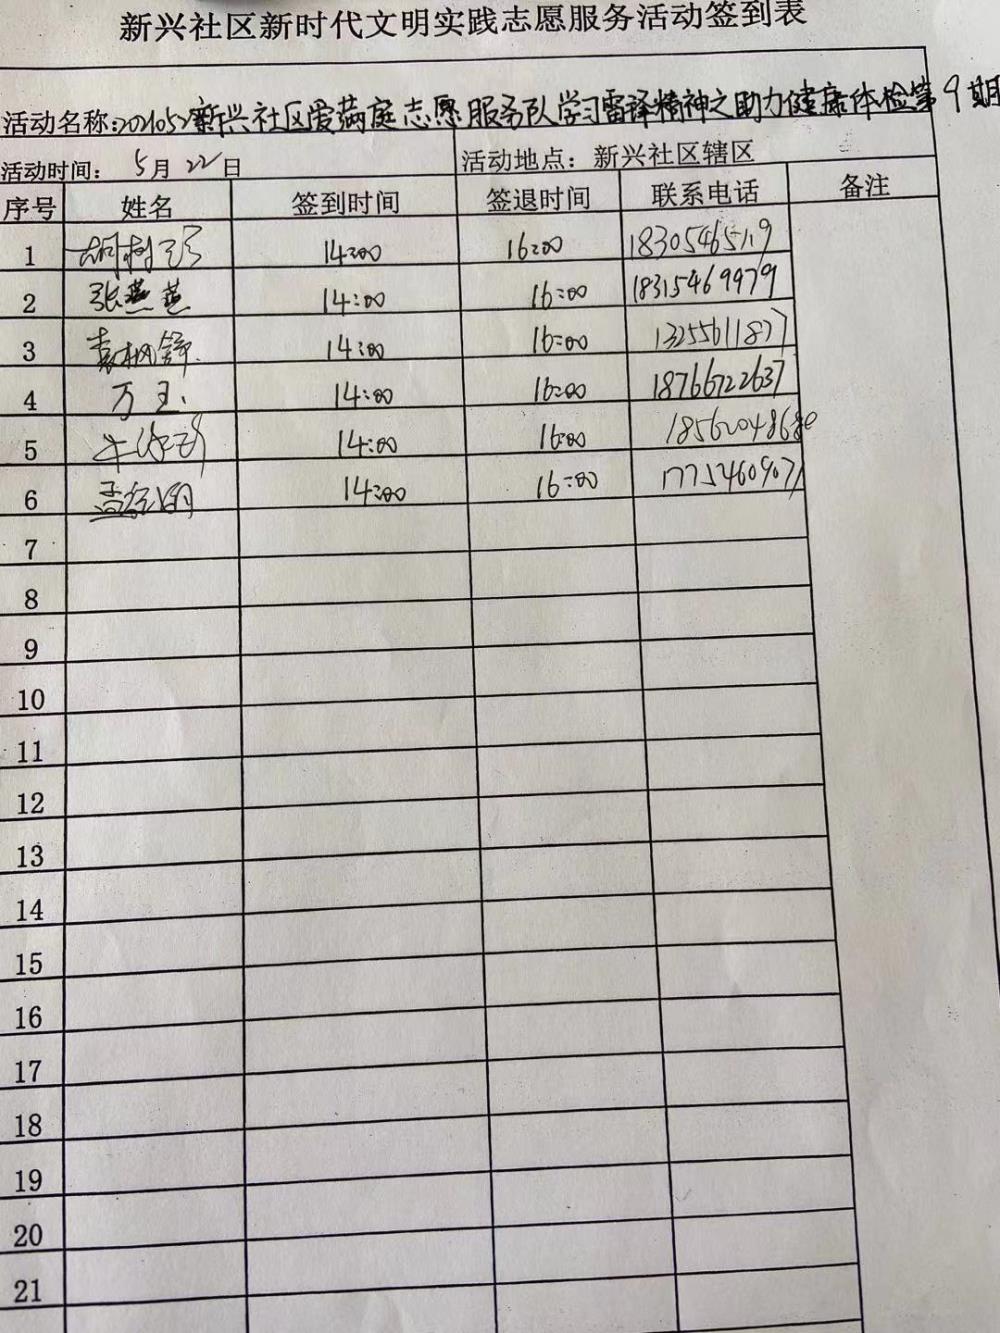 新兴社区新时代文明实践志愿服务活动签到表
活动名称:新兴社区爱满庭志愿服务队学习雷锋精神之助力健康体检第9期
活动时间: 5月22日 活动地点: 新兴社区辖区
序号 姓名 签到时间 签退时间 联系电话 备注
1 14:00 16:00 18305465119
2 张燕燕 14:00 16:00 18315469979
3 14:00 16:00 13255611877
4 万玉 14:00 16:00 18766722637
5 14:00 16:00
6 14:00 16:00
7
8
9
10
11
12
13
14
15
16
17
18
19
20
21